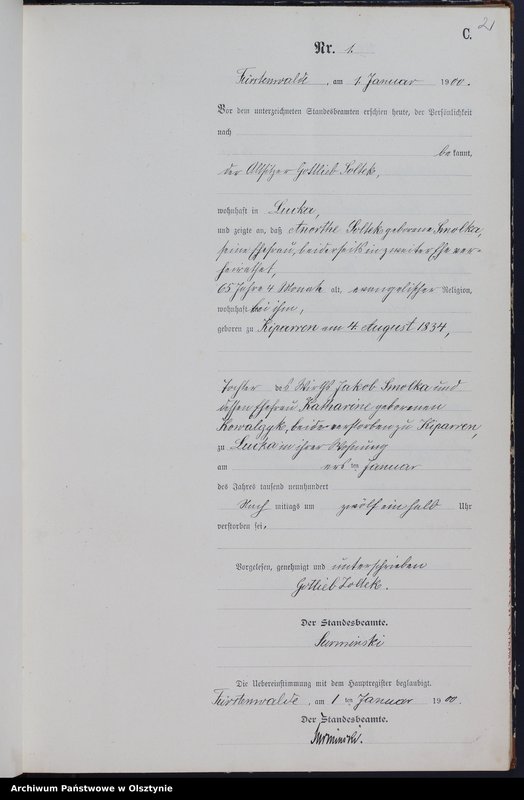 C. 2
Nr. 1.
Fürstenwalde, am 1. Januar 1900.
Vor dem unterzeichneten Standesbeamten erschien heute, der Persönlichkeit
nach
bekannt,
der Altsitzer Gottlieb Soltek,
wohnhaft in Lucka,
und zeigte an, daß Anorthe Soltek geborene Smolka,
seine Ehefrau, beiderseits in zweiter Ehe ver-
heirathet,
65 Jahre 4 Monate alt, evangelischer Religion,
wohnhaft bei ihm,
geboren zu Kiparren am 4. August 1834,
Tochter des Wirths Jakob Smolka und
dessen Ehefrau Katharine geborenen
Kowalzyk, beide verstorben zu Kiparren,
zu Lucka in ihrer Wohnung
am ersten Januar
des Jahres tausend neunhundert
Nach mittags um zwölf ein halb Uhr
verstorben sei.
Vorgelesen, genehmigt und unterschrieben
Gottlieb Soltek.
Der Standesbeamte.
Surminski
Die Uebereinstimmung mit dem Hauptregister beglaubigt.
Fürstenwalde, am 1ten Januar 1900.
Der Standesbeamte.
Surminski.
Archiwum Państwowe w Olsztynie